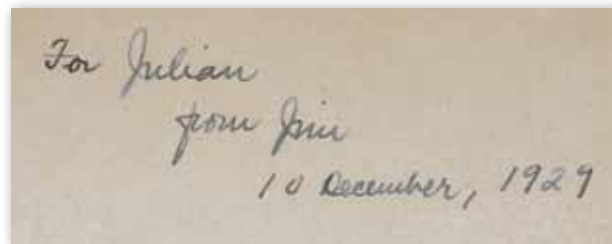 For Julian
from Jim
10 December, 1929